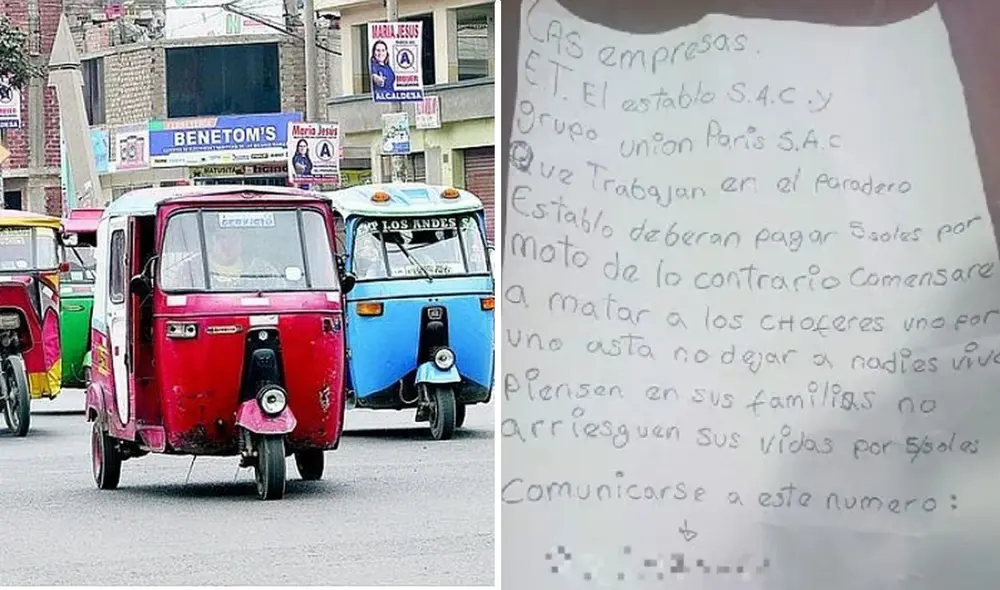 MARIA JESUS
A
ALCALDESA
BENETOM'S
Maria Jesus
A
MATUSITA
home
SERVICIO
LOS ANDES
LAS empresas.
E.T. El establo S.A.C. y
grupo union Paris S.A.C
Que Trabajan en el paradero
Establo deberan pagar 5soles por
moto de lo contrario Comensare
a matar a los CHOFERES uno por
uno asta no dejar a nadies vivo
Piensen en sus familias no
arriesguen sus vidas por 5/soles
Comunicarse a este numero: